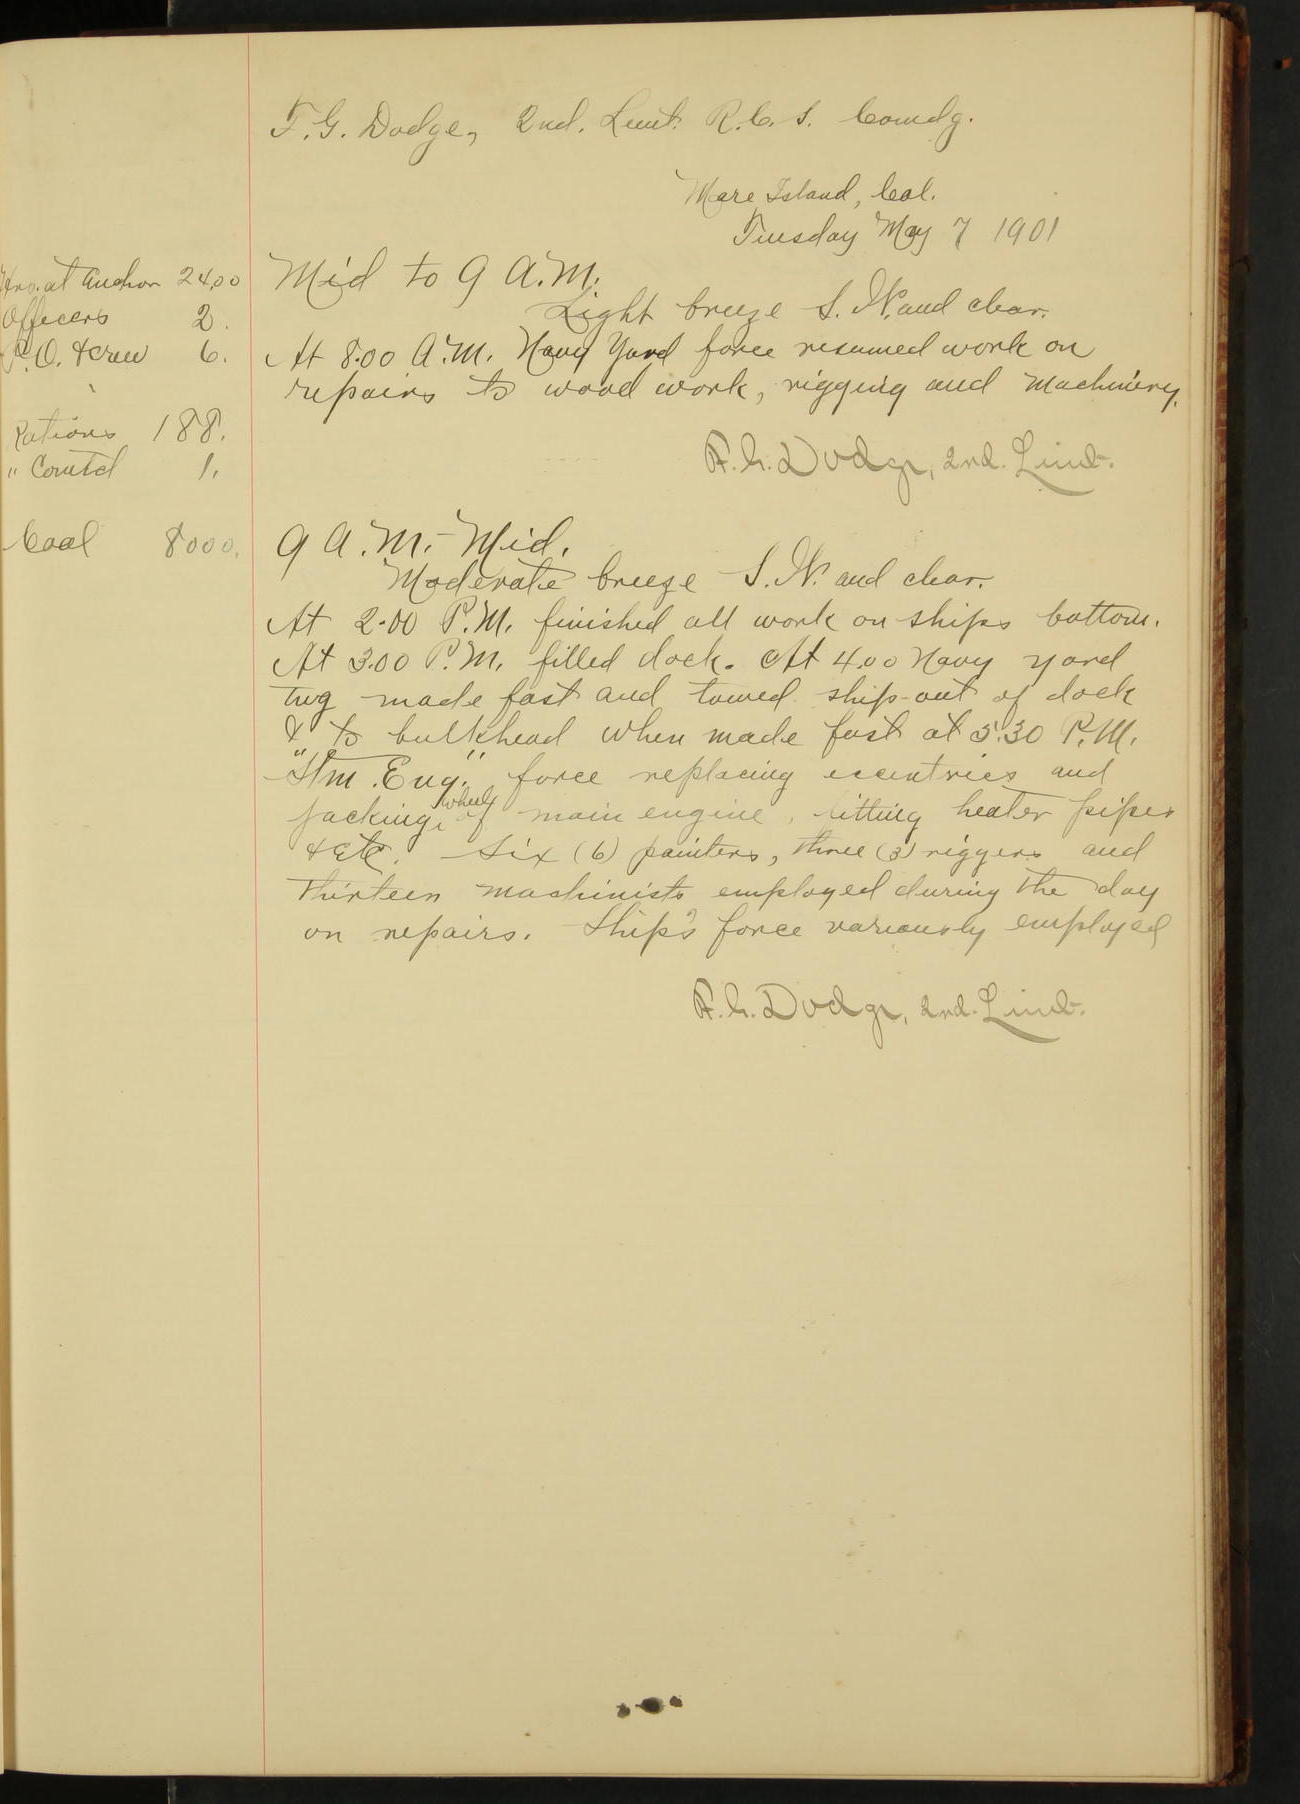 F. G. Dodge, 2nd. Lieut. R. C. S. Comdg.
Mare Island, Cal.
Tuesday May 7 1901
Hrs. at Anchor 24,00
Officers 2.
P.O. & crew 6.
Rations 188.
" Comtd 1.
Coal 8000.
Mid to 9 A.M.
Light breeze S. W. and clear.
At 8.00 A.M. Navy Yard force resumed work on
repairs to wood work, rigging and machinery.
F. G. Dodge, 2nd. Lieut.
9 A.M. - Mid.
Moderate breeze S. W. and clear.
At 2.00 P.M. finished all work on ships bottom.
At 3.00 P.M. filled dock. At 4.00 Navy yard
tug made fast and towed ship out of dock
& to bulkhead when made fast at 5.30 P.M.
"Stm. Eng." force replacing eccentrics and
packing, wheels of main engine, fitting heater pipes
& Etc. Six (6) painters, three (3) riggers and
thirteen machinists employed during the day
on repairs. Ship's force variously employed
F. G. Dodge, 2nd. Lieut.